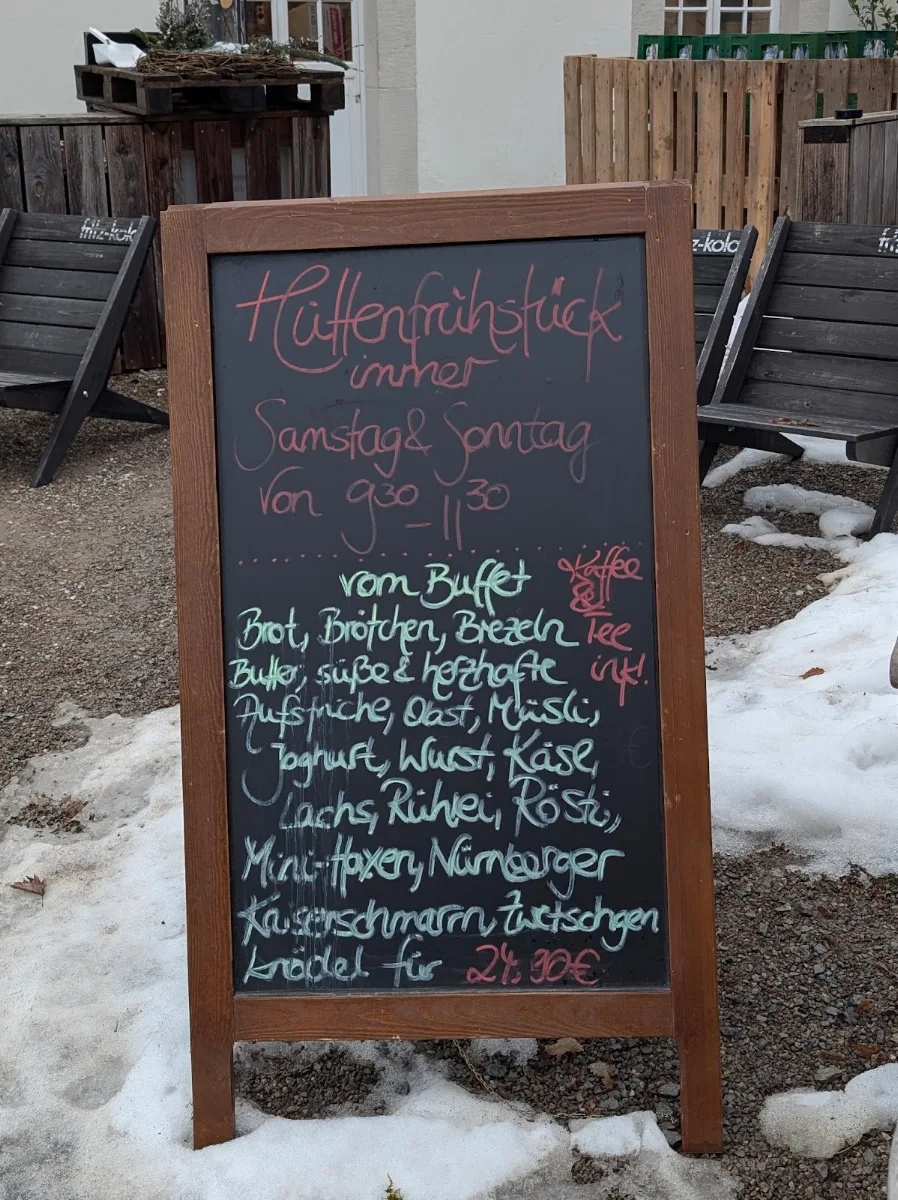 fritz-kola
z-kola
fri
Hüttenfrühstück
immer
Samstag & Sonntag
von 9³⁰ – 11³⁰
vom Buffet
Kaffee
&
Tee
ink!
Brot, Brötchen, Brezeln
Butter, süße & herzhafte
Aufstriche, Obst, Müsli,
Joghurt, Wurst, Käse,
Lachs, Rührei, Rösti,
Mini-Haxen, Nürnberger
Kaiserschmarrn, Zwetschgen
knödel für 24,90€